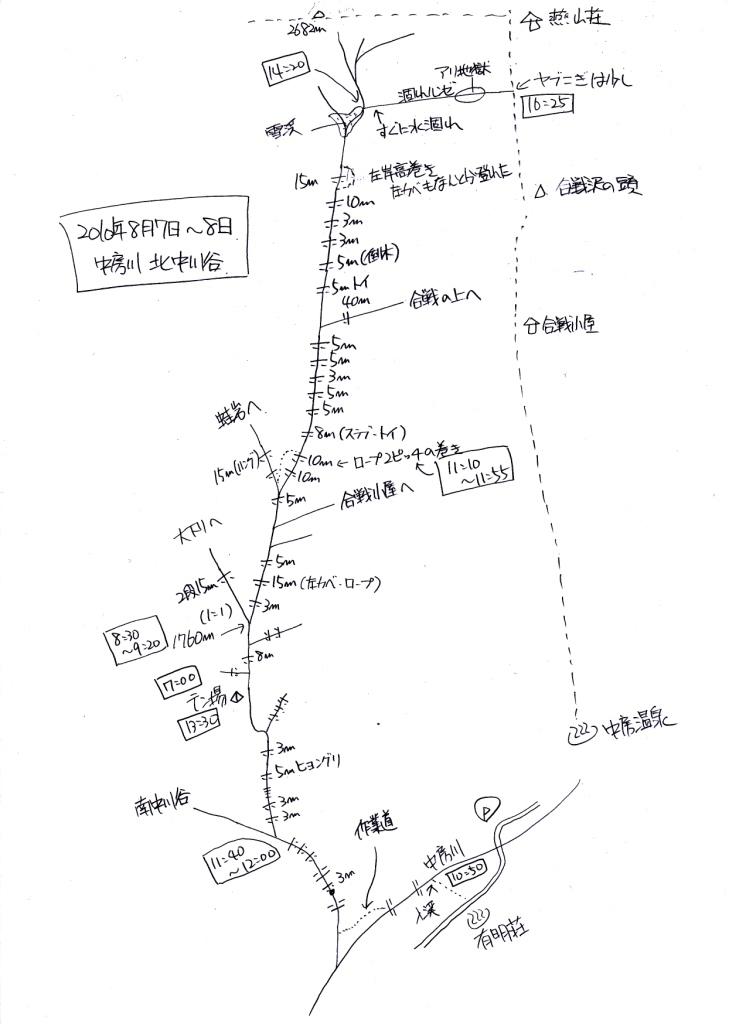 2682m
燕山荘
14:20
アリ地獄
涸れルンゼ
ヤブこぎは少し
16:25
雪渓
すぐに水涸れ
左岸高巻き
15m
10m
合戦沢の頭
3m
3m
2010年8月7日〜8日
中房川 北中川谷
5m(倒木)
5mトイ
40m
合戦の上へ
合戦小屋
5m
5m
3m
5m
5m
蛙岩へ
8m(スラブ・トイ)
15m(ハング)
10m ← ロープ2ピッチの巻き
10m
11:10
〜11:55
5m
合戦小屋へ
大下りへ
5m
2段15m
15m(左カベ・ロープ)
3m
(1:1)
1760m
8:30
〜9:20
8m
7:00
テン場
13:30
中房温泉
3m
5mヒョングリ
南中川谷
3m
3m
P
作業道
中房川
11:40
〜12:00
3m
10:50
入渓
有明荘